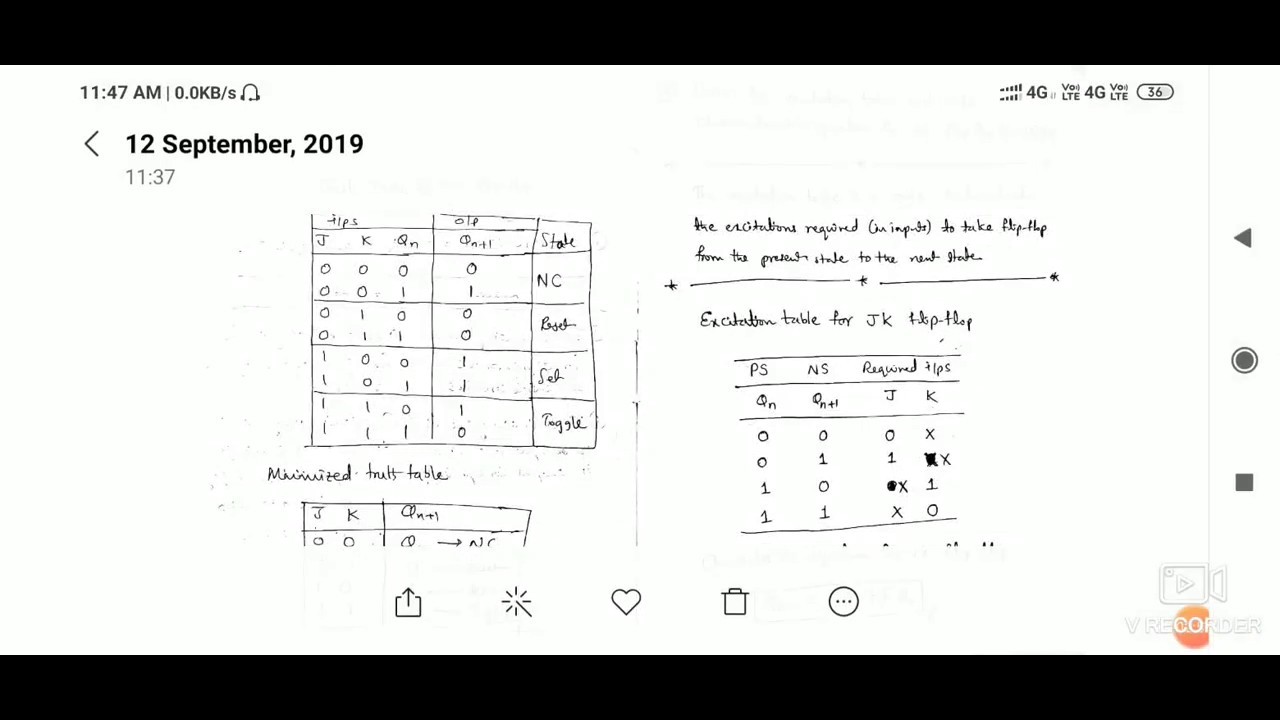 11:47 AM | 0.0KB/s
4G VoLTE 4G VoLTE 36
12 September, 2019
11:37
i/ps o/p
J K Qn Qn+1 State
0 0 0 0
0 0 1 1
NC
0 1 0 0
0 1 1 0
Reset
1 0 0 1
1 0 1 1
Set
1 1 0 1
1 1 1 0
Toggle
Minimized truth table
J K Qn+1
0 0 Q → NC
the excitations required (in inputs) to take flip-flop
from the present state to the next state
* * *
Excitation table for JK flip-flop
PS NS Required i/ps
Qn Qn+1 J K
0 0 0 X
0 1 1 X
1 0 X 1
1 1 X 0
V RECORDER